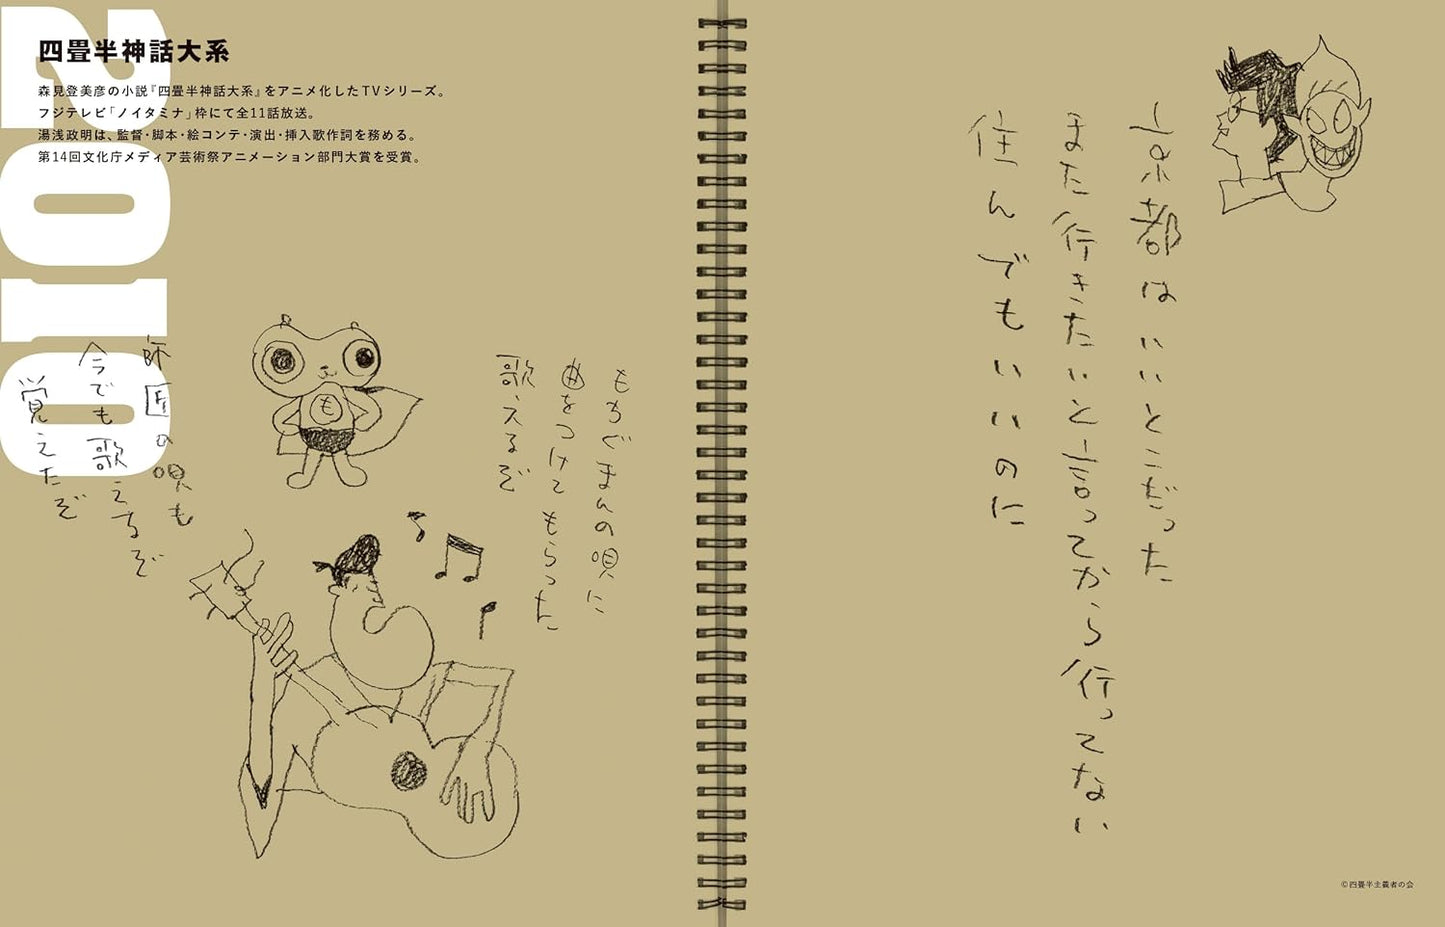 2010
四畳半神話大系
森見登美彦の小説『四畳半神話大系』をアニメ化したTVシリーズ。
フジテレビ「ノイタミナ」枠にて全11話放送。
湯浅政明は、監督・脚本・絵コンテ・演出・挿入歌作詞を務める。
第14回文化庁メディア芸術祭アニメーション部門大賞を受賞。
もちぐまんの唄に
曲をつけてもらった
歌えるぞ
も
師匠の唄も
今でも歌えるぞ
覚えたぞ
京都はいいとこだった
また行きたいと言ってから行ってない
住んでもいいのに
©四畳半主義者の会